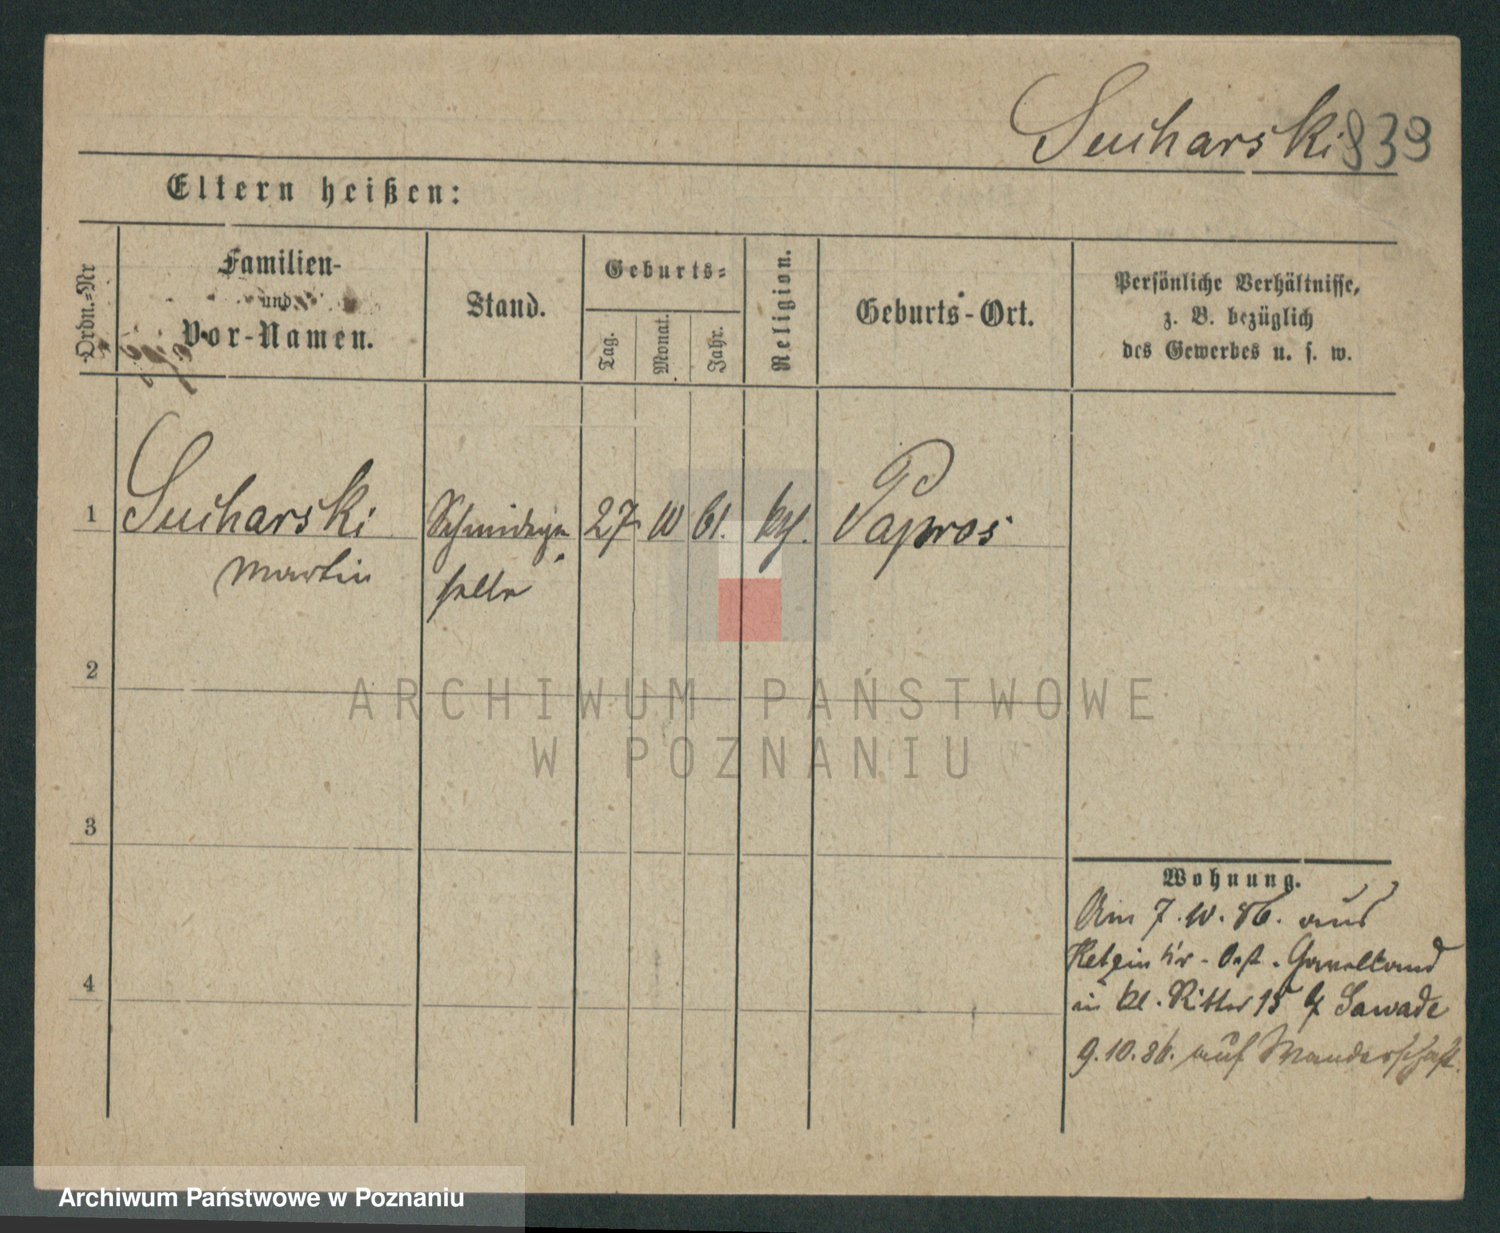 Sucharski 839
Eltern heißen:
Ordn.=Nr
Familien-
und
Vor-Namen.
Stand.
Geburts=
Tag.
Monat.
Jahr.
Religion.
Geburts-Ort.
Persönliche Verhältnisse,
z. B. bezüglich
des Gewerbes u. s. w.
1
Sucharski
Martin
Schmidege
selle
27
10
61.
kth.
Papros
2
ARCHIWUM PAŃSTWOWE
W POZNANIU
3
Wohnung.
Am 7.10.86. aus
Ketzin Kr. Ost. Havelland
in kl. Ritter 15 b/ Sawade
4
9.10.86. auf Wanderschaft.
Archiwum Państwowe w Poznaniu